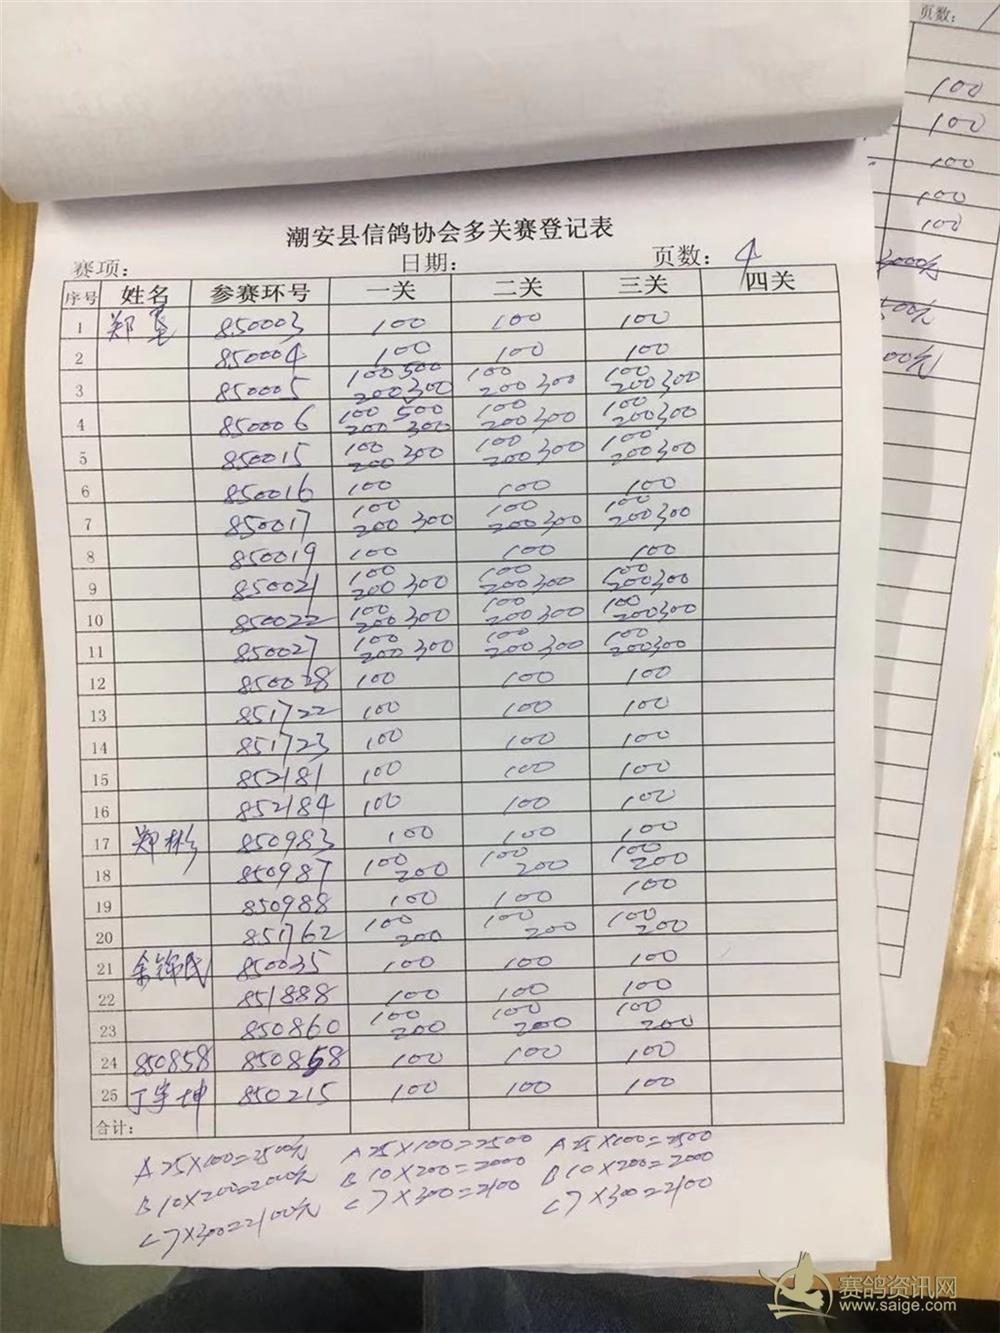 页数:
100
100
100
100
100
潮安县信鸽协会多关赛登记表
赛项: 日期: 页数: 4
序号 姓名 参赛环号 一关 二关 三关 四关
1 郑 850003 100 100 100
2 850004 100 100 100
3 850005 100 500 200 300 100 200 300 100 200 300
4 850006 100 500 200 300 100 200 300 100 200 300
5 850015 100 200 300 100 200 300 100 200 300
6 850016 100 100 100
7 850017 100 200 300 100 200 300 100 200 300
8 850019 100 100 100
9 850021 100 200 300 100 200 300 100 200 300
10 850022 100 200 300 100 200 300 100 200 300
11 850027 100 200 300 100 200 300 100 200 300
12 850028 100 100 100
13 851722 100 100 100
14 851723 100 100 100
15 852181 100 100 100
16 852184 100 100 100
17 郑彬 850983 100 100 100
18 850987 100 200 100 200 100 200
19 850988 100 100 100
20 851762 100 200 100 200 100 200
21 余锦民 850035 100 100 100
22 851888 100 100 100
23 850860 100 200 100 200 100 200
24 850858 850858 100 100 100
25 丁宇坤 850215 100 100 100
合计:
A 25×100=2500元 A 25×100=2500 A 25×100=2500
B 10×200=2000元 B 10×200=2000 B 10×200=2000
C 7×300=2100元 C 7×300=2100 C 7×300=2100
赛鸽资讯网
www.saige.com